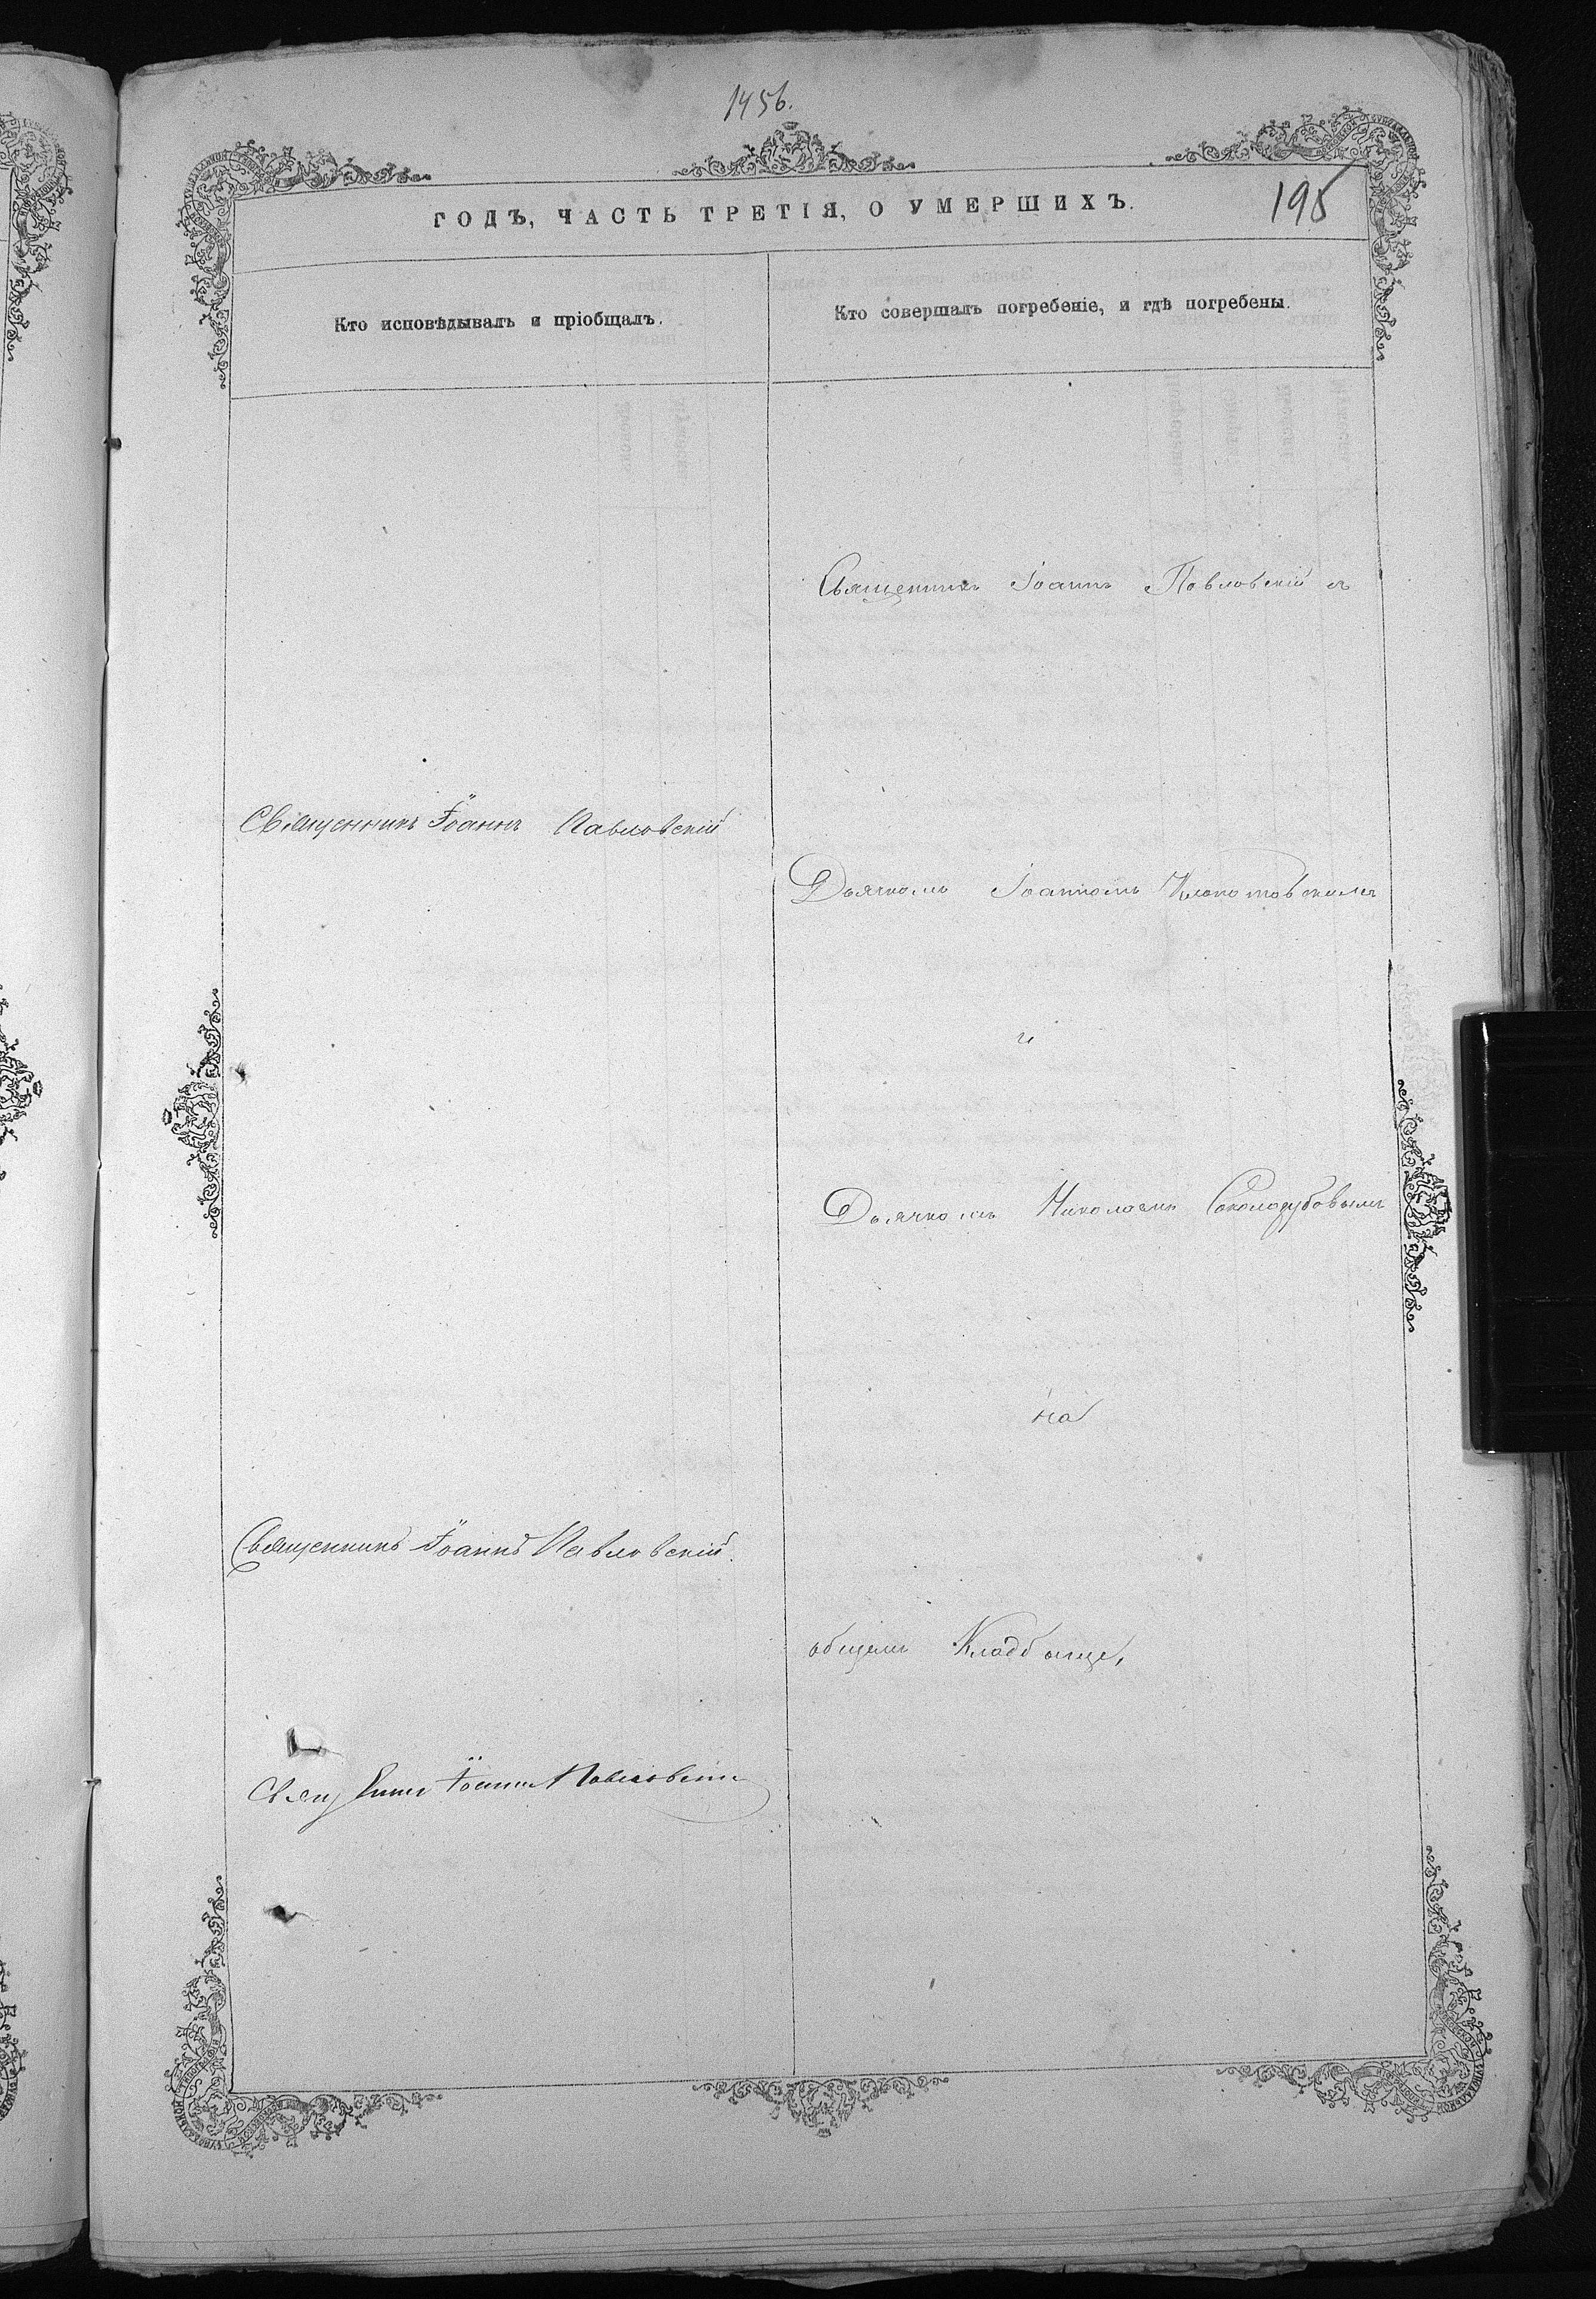 1456.
ГОДЪ, ЧАСТЬ ТРЕТІЯ, О УМЕРШИХЪ.
195
Кто исповѣдывалъ и пріобщалъ.
Кто совершалъ погребеніе, и гдѣ погребены.
Священникъ Іоаннъ Павловскій съ
Священникъ Іоаннъ Павловскій
Дьячкомъ Іоанномъ Клопотовскимъ
и
Дьячкомъ Николаемъ
на
Священникъ Іоаннъ Павловскій.
общемъ Кладбище,
Іоаннъ Павловскій